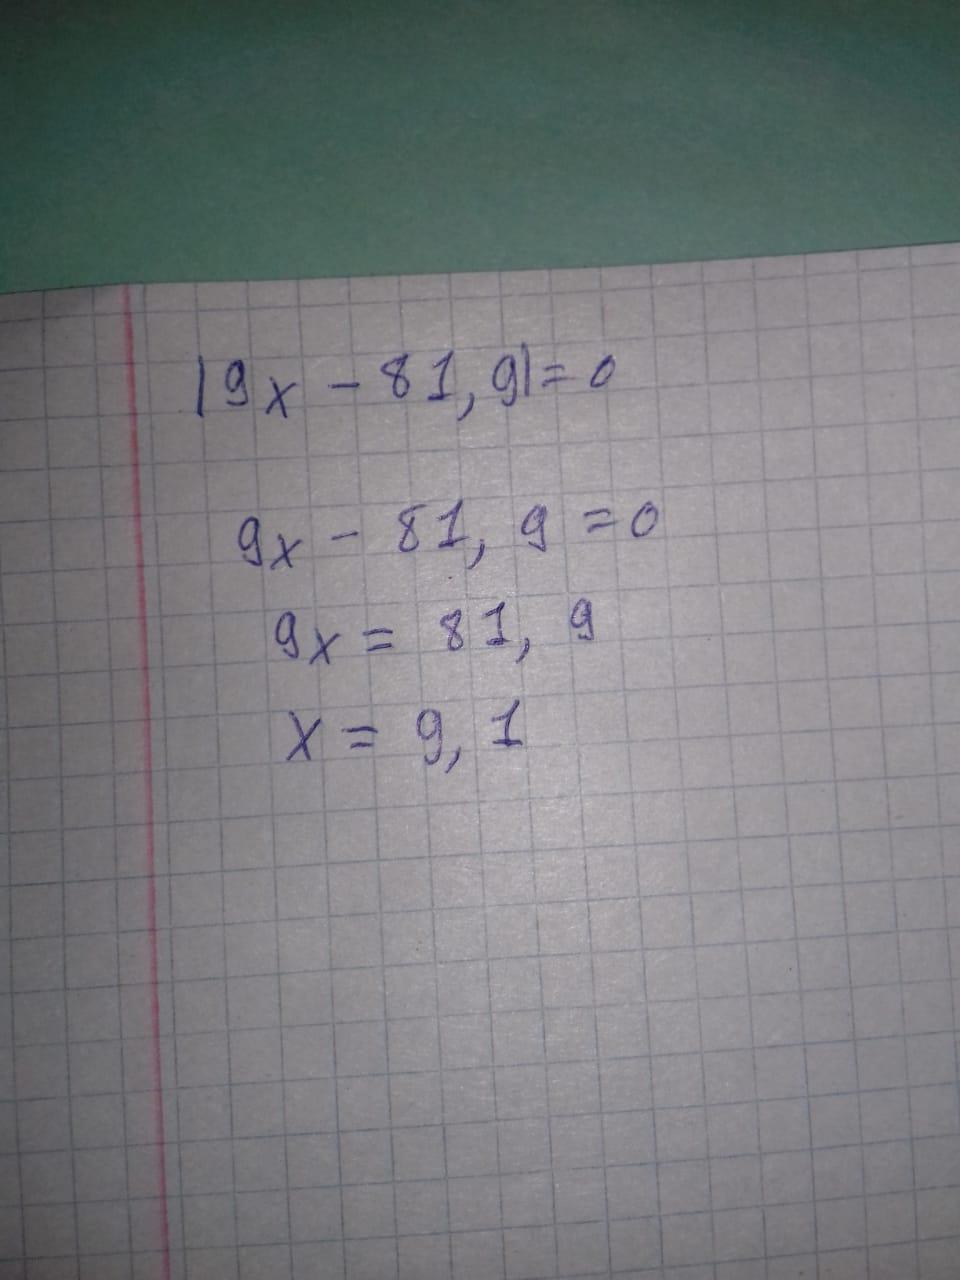 |9x - 81,9| = 0
9x - 81,9 = 0
9x = 81,9
x = 9,1